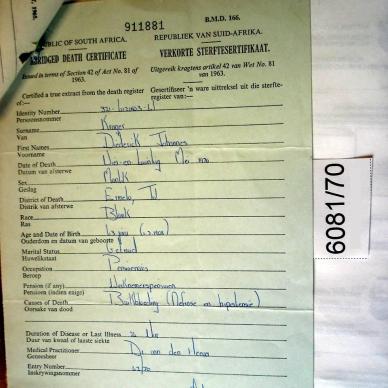 911881
B.M.D. 166.
PUBLIC OF SOUTH AFRICA.
REPUBLIEK VAN SUID-AFRIKA.
BRIDGED DEATH CERTIFICATE
VERKORTE STERFTESERTIFIKAAT.
Issued in terms of Section 42 of Act No. 81 of 1963.
Uitgereik kragtens artikel 42 van Wet No. 81 van 1963.
Certified a true extract from the death register of:—
Gesertifiseer 'n ware uittreksel uit die sterfteregister van:—
Identity Number
Persoonsnommer
Surname
Van
First Names
Voorname
Johannes
Date of Death
Datum van afsterwe
Mei 1970
Sex
Geslag
Manlik
District of Death
Distrik van afsterwe
Ermelo, TVL
Race
Ras
Blank
Age and Date of Birth
Ouderdom en datum van geboorte
63 jaar
Marital Status
Huwelikstaat
Getroud
Occupation
Beroep
Pensioenaris
Pension (if any)
Pensioen (indien enige)
Causes of Death
Oorsake van dood
Duration of Disease or Last Illness
Duur van kwaal of laaste siekte
Medical Practitioner
Geneesheer
Dr. van den Heever
Entry Number
Inskrywingsnommer
62/70
6081/70